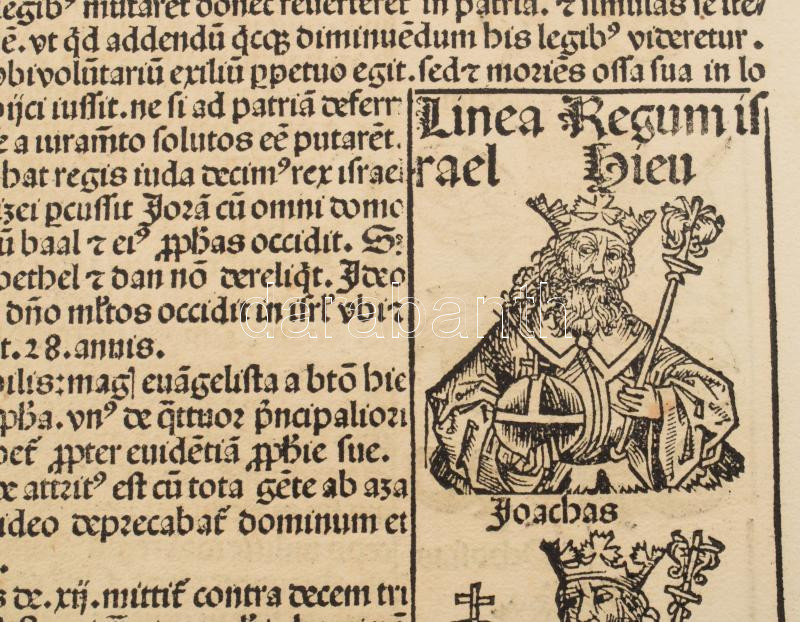 legibꝰ mutaret donec reverteret in patria. ⁊ simulas se ite/
ē. vt qd addendū qcqꝫ diminuēdum his legibꝰ videretur.
vbi volūtariū exiliū ꝑpetuo egit. sed ⁊ moriēs ossa sua in lo
ijci iussit. ne si ad patriā deferr
e a iuramēto solutos eē putarēt.
bat regis iuda decimꝰ rex israel
percussit Jorā cū omni domo
ū baal ⁊ eiꝰ ꝓphas occidit. Sꝫ
bethel ⁊ dan nō dereliqt. Ideo
dño mltos occidit in isrl vbi r
t. 28. annis.
bilis: magꝭ euāgelista a btō hie
pha. vnꝰ de qttuor pncipaliori
ꝓpter euidētiā ꝓphie sue.
attritꝰ est cū tota gēte ab aza
ideo deprecabat dominum et
s de .xij. mittit contra decem tri
Linea Regum is
rael Hieu
Joachas
darabanth